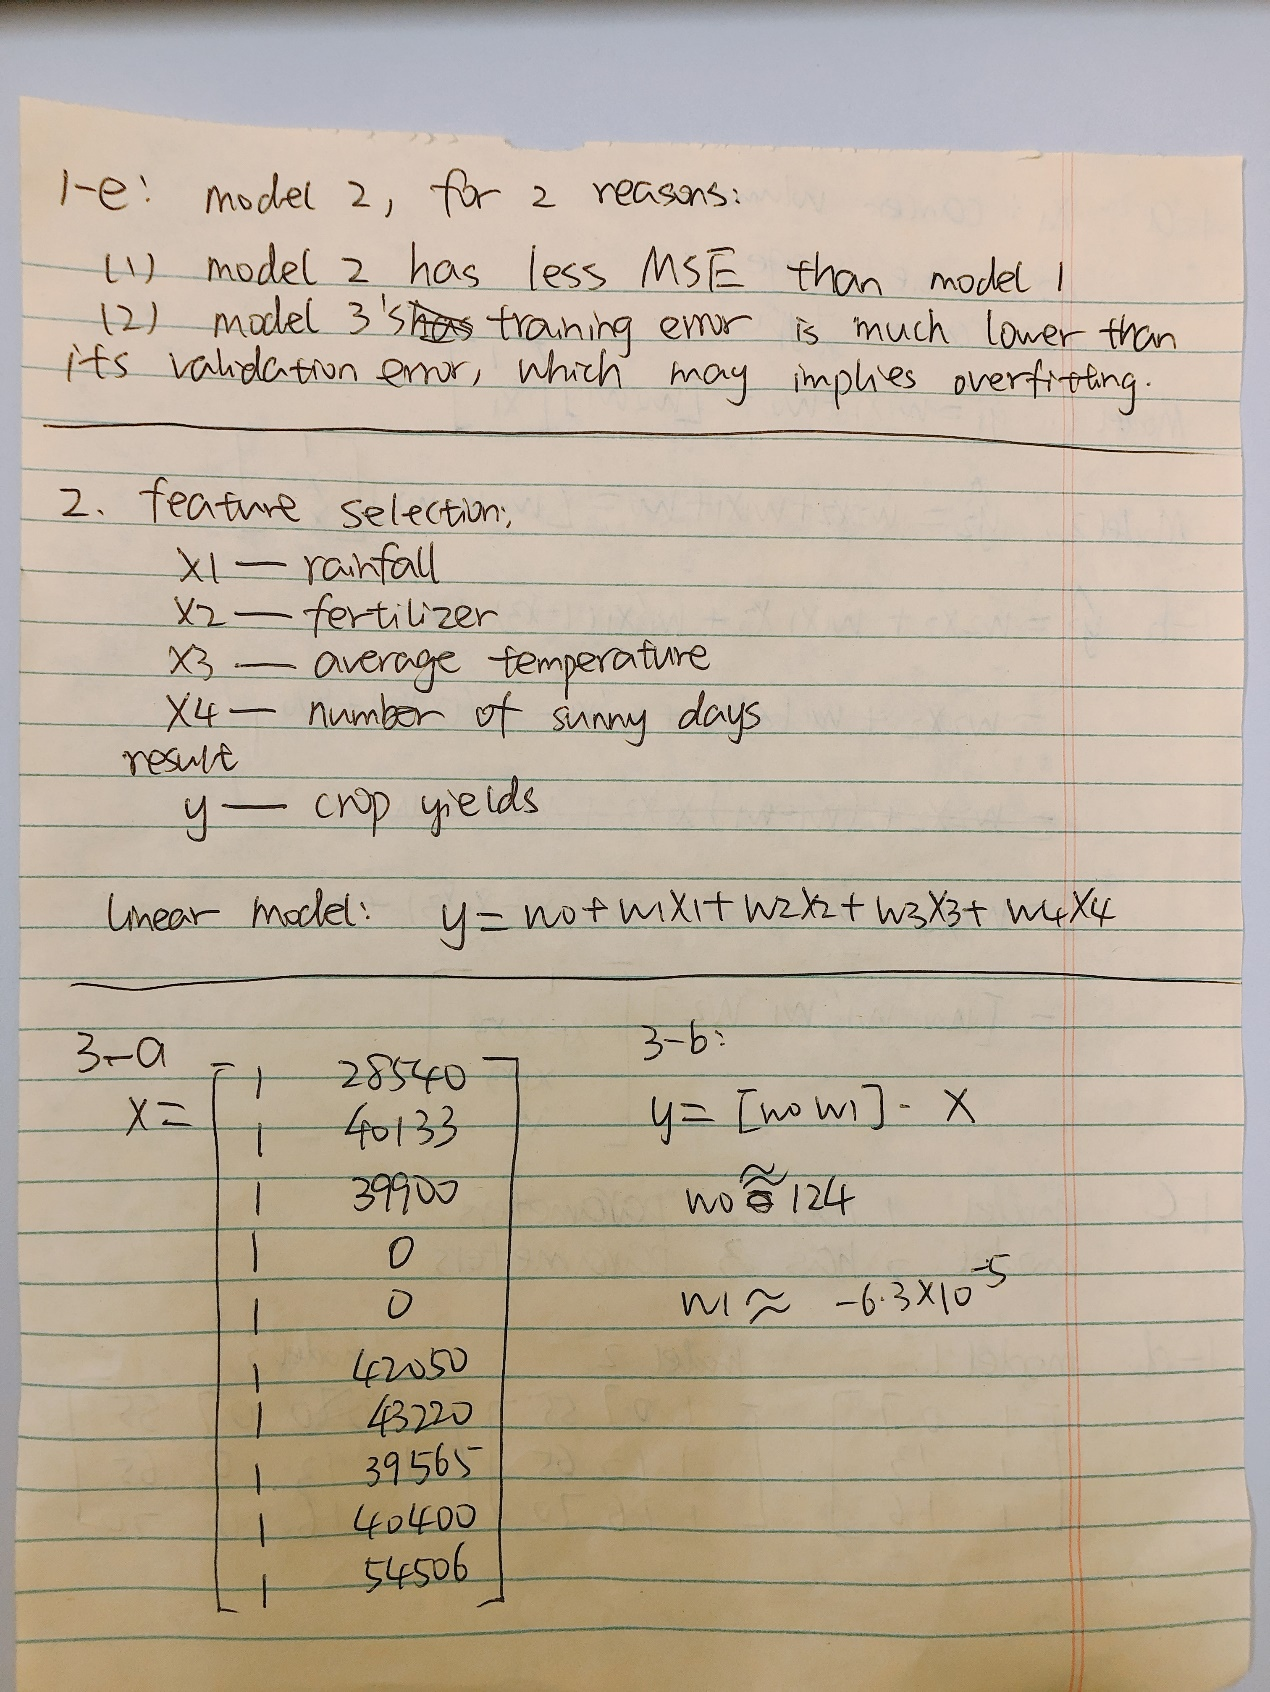 1-e: model 2, for 2 reasons:
(1) model 2 has less MSE than model 1
(2) model 3's training error is much lower than
its validation error, which may implies overfitting.
2. feature selection;
X1 — rainfall
X2 — fertilizer
X3 — average temperature
X4 — number of sunny days
result
y — crop yields
linear model: y = w0 + w1X1 + w2X2 + w3X3 + w4X4
3-a
X = [
1 28540
1 40133
1 39900
1 0
1 0
1 42050
1 43220
1 39565
1 40400
1 54506
]
3-b:
y = [w0 w1] · X
w0 ≈ 124
w1 ≈ -6.3×10⁻⁵